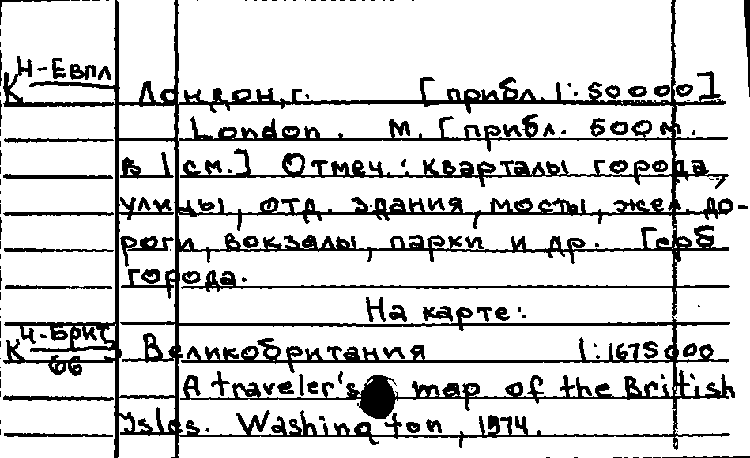 К Ч-Евпл
Лондон, г. [прибл. 1:50000]
London. М. [прибл. 500 м.
в 1 см.] Отмеч.: кварталы города,
улицы, отд. здания, мосты, жел. до-
роги, вокзалы, парки и др. Герб
города.
На карте:
К Ч-Брит
66 Великобритания 1:1675000
A traveler's map of the British
Isles. Washington, 1974.